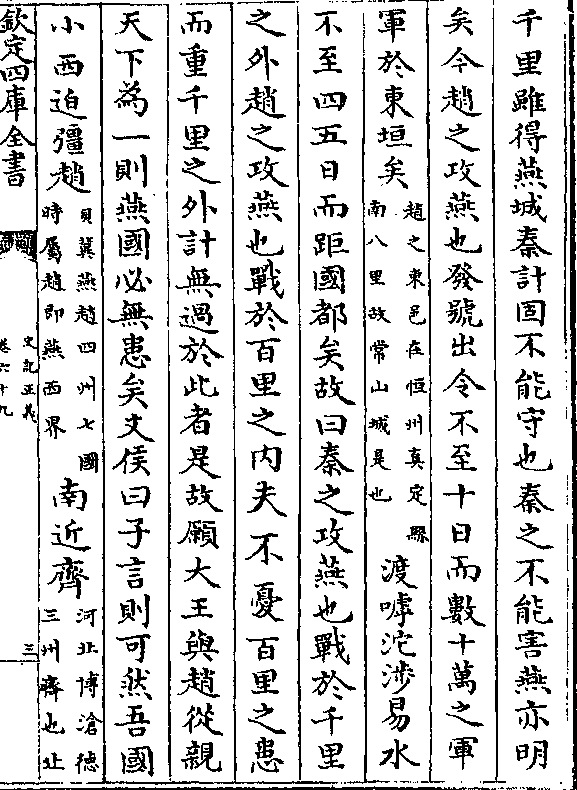 千里雖得燕城秦計固不能守也秦之不能害燕亦明
矣今趙之攻燕也發號出令不至十日而數十萬之軍
軍於東垣矣趙之東邑在恒州真定縣南八里故常山城是也渡嘑沱涉易水
不至四五日而距國都矣故曰秦之攻燕也戰於千里
之外趙之攻燕也戰於百里之内夫不憂百里之患
而重千里之外計無過於此者是故願大王與趙從親
天下為一則燕國必無患矣文侯曰子言則可然吾國
小西迫彊趙貝冀燕趙四州七國時屬趙即燕西界南近齊河北博滄德三州齊也北
欽定四庫全書
史記正義
卷六十九
三